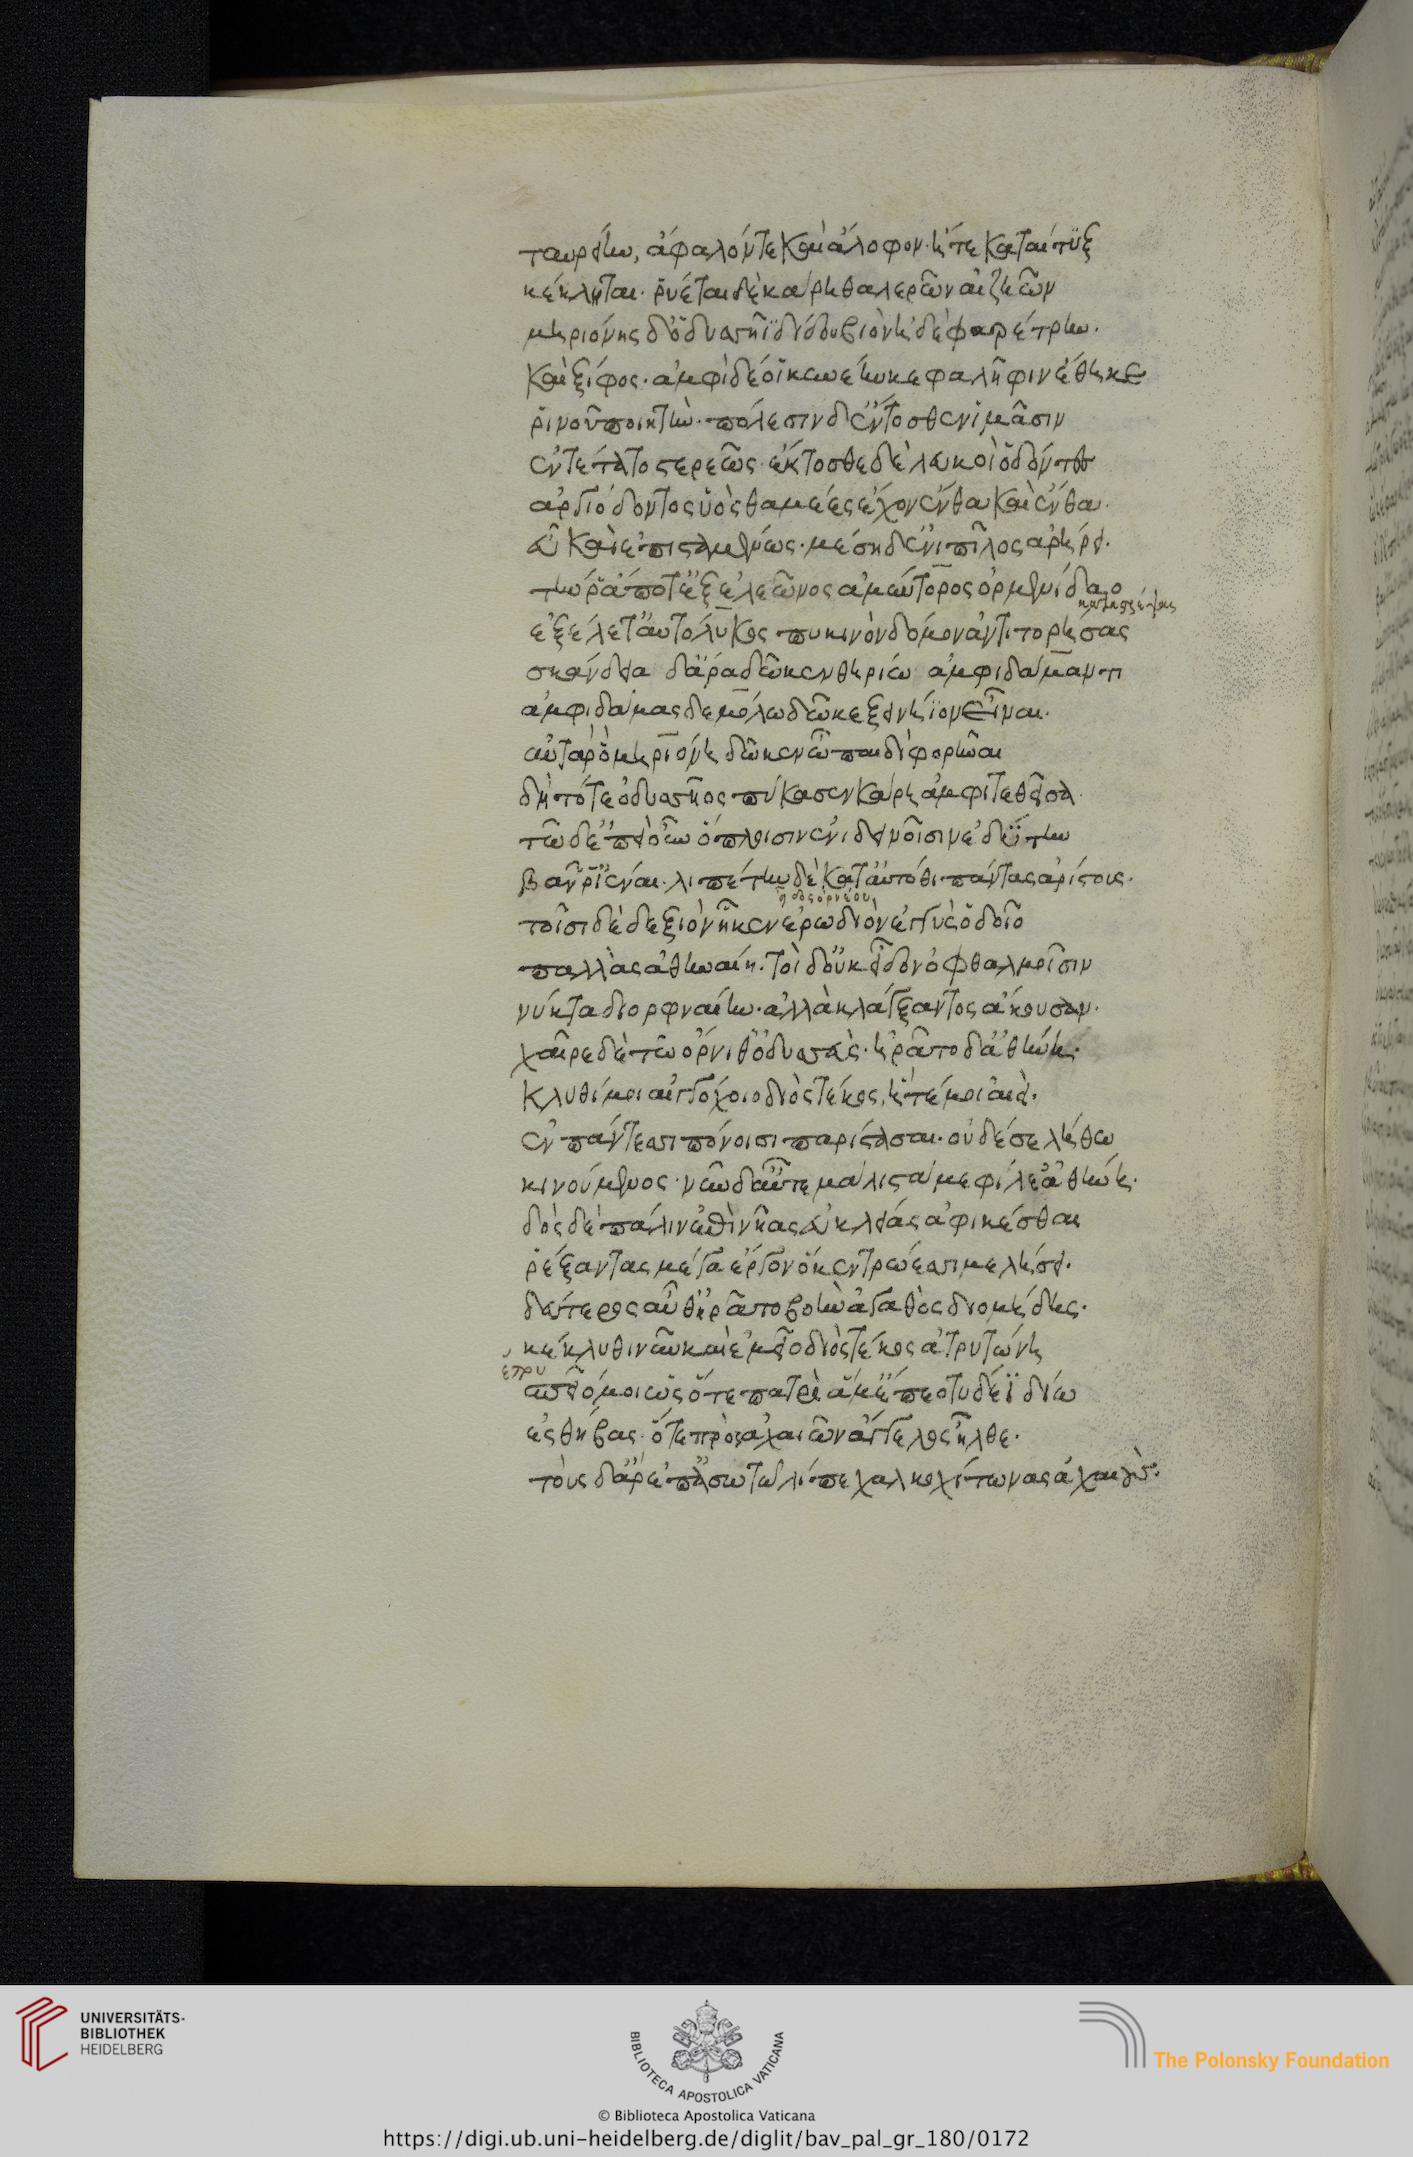 ταυρείην, ἀφαλόν τε καὶ ἄλοφον· ἥ τε καταίτυξ
κέκληται· ῥύεται δὲ κάρη θαλερῶν αἰζηῶν
μηριόνης δ' ὀδυσσῆϊ δίδου βιὸν ἠδὲ φαρέτρην·
καὶ ξίφος· ἀμφὶ δέ οἱ κυνέην κεφαλῆφιν ἔθηκε
ῥινοῦ ποιητὴν· πολέσιν δ' ἔντοσθεν ἱμᾶσιν
ἐντέτατο στερεῶς· ἔκτοσθε δὲ λευκοὶ ὀδόντες
ἀργιόδοντος ὑὸς θαμέες ἔχον ἔνθα καὶ ἔνθα·
εὖ καὶ ἐπισταμένως· μέση δ' ἐνὶ πῖλος ἀρήρει·
τήν ῥά ποτ' ἐξ ἐλεῶνος ἀμύντορος ὀρμενίδαο
κατασχέψας
ἐξέλετ' αὐτόλυκος πυκινὸν δόμον ἀντιτορήσας
σκάνδεια δ' ἄρα δῶκεν θηρίω ἀμφιδάμαντι
ἀμφιδάμας δε μόλω δῶκε ξεινήϊον εἶναι·
αὐτὰρ ὃ μηριόνη δῶκεν ὧ παιδὶ φορῆναι
δὴ τότε ὀδυσσῆος πύκασεν κάρη ἀμφιτεθεῖσα·
τὼ δ' ἐπεὶ οὖν ὅπλοισιν ἐνὶ δεινοῖσιν ἐδύτην
βάν ῥ' ἰέναι· λιπέτην δὲ κατ' αὐτόθι πάντας ἀρίστους·
εἶδος ὀρνέου
τοῖσι δὲ δεξιὸν ἧκεν ἐρωδιὸν ἐγγὺς ὁδοῖο
παλλὰς ἀθηναίη· τοὶ δ' οὐκ εἶδον ὀφθαλμοῖσιν
νύκτα δι' ὀρφναίην· ἀλλὰ κλάγξαντος ἄκουσαν·
χαῖρε δὲ τῶ ὄρνιθ' ὀδυσεὺς· ἠρᾶτο δ' ἀθήνη·
κλυθί μοι αἰγιόχοιο διὸς τέκος, ἥ τέ μοι αἰεὶ·
ἐν πάντεσσι πόνοισι παρίστασαι· οὐδέ σε λήθω
κινούμενος· νῦν δ' αὖτε μάλιστά με φίλε' ἀθήνη·
δὸς δὲ πάλιν ἐπὶ νῆας εὐκλεάς ἀφικέσθαι
ῥέξαντας μέγα ἔργον ὅ κεν τρώεσσι μελήσει·
δεύτερος αὖθ' ἠρᾶτο βοὴν ἀγαθὸς διομήδης·
κέκλυθι νῦν καὶ ἐμεῖο διὸς τέκος ἀτρυτώνη
σπεῖό μοι ὡς ὅτε πατρὶ ἅμ' ἕπεο τυδέϊ δίω
ἐς θήβας· ὅτε πρὸς ἀχαιῶν ἄγγελος ἦλθε·
τοὺς δ' ἄρ' ἐπ' ἀσωπῶ λίπε χαλκοχίτωνας ἀχαιούς·
UNIVERSITÄTS-
BIBLIOTHEK
HEIDELBERG
BIBLIOTECA APOSTOLICA VATICANA
The Polonsky Foundation
© Biblioteca Apostolica Vaticana
https://digi.ub.uni-heidelberg.de/diglit/bav_pal_gr_180/0172